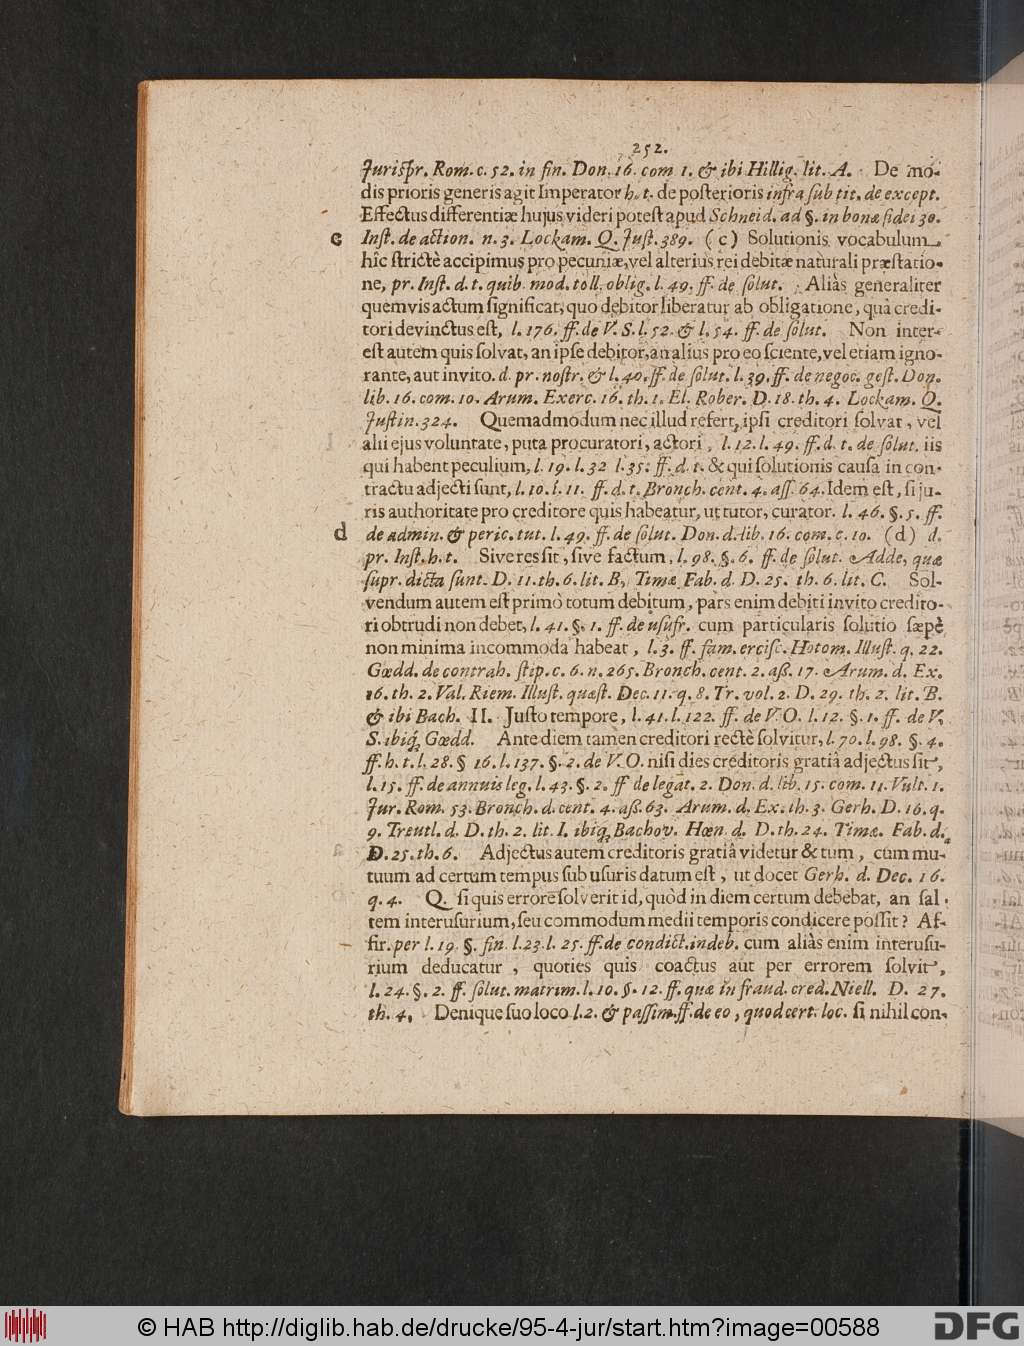 252.
Jurispr. Rom. c. 52. in fin. Don. 16. com 1. & ibi Hillig. lit. A. De mo-
dis prioris generis agit Imperator h. t. de posterioris infra sub tit. de except.
Effectus differentiæ hujus videri potest apud Schneid. ad §. in bonæ fidei 30.
c Inst. de action. n. 3. Lockam. Q. Just. 389. (c) Solutionis vocabulum
hîc strictè accipimus pro pecuniæ, vel alterius rei debitæ naturali præstatio-
ne, pr. Inst. d. t. quib. mod. toll. oblig. l. 49. ff. de solut. Aliàs generaliter
quemvis actum significat, quo debitor liberatur ab obligatione, quâ credi-
tori devinctus est, l. 176. ff. de V. S. l. 52. & l. 54. ff. de solut. Non inter-
est autem quis solvat, an ipse debitor, an alius pro eo sciente, vel etiam igno-
rante, aut invito. d. pr. nostr. & l. 40. ff. de solut. l. 39. ff. de negoc. gest. Don.
lib. 16. com. 10. Arum. Exerc. 16. th. 1. El. Rober. D. 18. th. 4. Lockam. Q.
Justin. 324. Quemadmodum nec illud refert, ipsi creditori solvat, vel
alii ejus voluntate, puta procuratori, actori, l. 12. l. 49. ff. d. t. de solut. iis
qui habent peculium, l. 19. l. 32 l. 35. ff. d. t. & qui solutionis causa in con-
tractu adjecti sunt, l. 10. l. 11. ff. d. t. Bronch. cent. 4. ass. 64. Idem est, si ju-
ris authoritate pro creditore quis habeatur, ut tutor, curator. l. 46. §. 5. ff.
d de admin. & peric. tut. l. 49. ff. de solut. Don. d. lib. 16. com. c. 10. (d) d.
pr. Inst. h. t. Sive res sit, sive factum, l. 98. §. 6. ff. de solut. Adde, quæ
supr. dicta sunt. D. 11. th. 6. lit. B, Timæ Fab. d. D. 25. th. 6. lit. C. Sol-
vendum autem est primò totum debitum, pars enim debiti invito credito-
ri obtrudi non debet, l. 41. §. 1. ff. de usufr. cum particularis solutio sæpè
non minima incommoda habeat, l. 3. ff. fam. ercisc. Hotom. Illust. q. 22.
Gœdd. de contrah. stip. c. 6. n. 265. Bronch. cent. 2. aß. 17. Arum. d. Ex.
16. th. 2. Val. Riem. Illust. quæst. Dec. 11. q. 8. Tr. vol. 2. D. 29. th. 2. lit. B.
& ibi Bach. II. Justo tempore, l. 41. l. 122. ff. de V. O. l. 12. §. 1. ff. de V.
S. ibiq́; Gœdd. Ante diem tamen creditori rectè solvitur, l. 70. l. 98. §. 4.
ff. h. t. l. 28. § 16. l. 137. §. 2. de V. O. nisi dies creditoris gratiâ adjectus sit,
l. 15. ff. de annuis leg. l. 43. §. 2. ff de legat. 2. Don. d. lib. 15. com. 11. Vult. 1.
Jur. Rom. 53. Bronch. d. cent. 4. aß. 63. Arum. d. Ex. th. 3. Gerh. D. 16. q.
9. Treutl. d. D. th. 2. lit. I. ibiq́; Bachov. Hœn. d. D. th. 24. Timæ. Fab. d.
D. 25. th. 6. Adjectus autem creditoris gratiâ videtur & tum, cùm mu-
tuum ad certum tempus sub usuris datum est, ut docet Gerh. d. Dec. 16.
q. 4. Q. si quis errore solverit id, quòd in diem certum debebat, an sal-
tem interusurium, seu commodum medii temporis condicere possit? Af-
fir. per l. 19. §. fin. l. 23. l. 25. ff. de condict. indeb. cum aliàs enim interusu-
rium deducatur, quoties quis coactus aut per errorem solvit,
l. 24. §. 2. ff. solut. matrim. l. 10. §. 12. ff. quæ in fraud. cred. Niell. D. 27.
th. 4. Denique suo loco l. 2. & passim. ff. de eo, quod cert. loc. si nihil con-
© HAB http://diglib.hab.de/drucke/95-4-jur/start.htm?image=00588
DFG